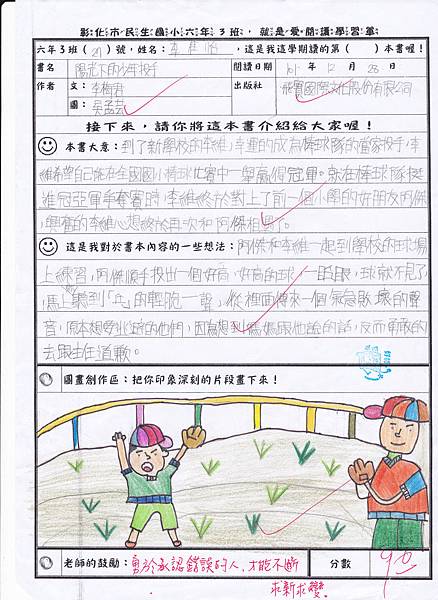 彰化市民生國小六年3班,就是愛閱讀學習單
六年3班(21)號,姓名:李 ,這是我這學期讀的第( )本書喔!
書名 陽光下的少年投手 閱讀日期 101 年 12 月 28 日
作者 文:李梅君 出版社 飛寶國際文化股份有限公司
圖:吳孟芸
接下來,請你將這本書介紹給大家喔!
本書大意:到了新學校的李維,幸運的成為棒球隊的當家投手,李
維希望自己能在全國國小棒球比賽中一舉贏得冠軍。就在棒球隊挺
進冠亞軍爭奪賽時,李維終於對上了前一個小學的好朋友阿傑
,興奮的李維心想終於再次和阿傑相 。
這是我對於書本內容的一些想法:阿傑和李維一起到學校的球場
上練習,阿傑順手投出一個好高、好高的球,一眨眼,球就不見了
,馬上聽到「 」的輕脆一聲,從裡面傳來一個氣急敗壞的聲
音,原本想要逃跑的他們,因為想到媽媽跟他說的話,反而勇敢的
去跟主任道歉。
圖畫創作區:把你印象深刻的片段畫下來!
老師的鼓勵:勇於承認錯誤的人,才能不斷 分數
求新求變。